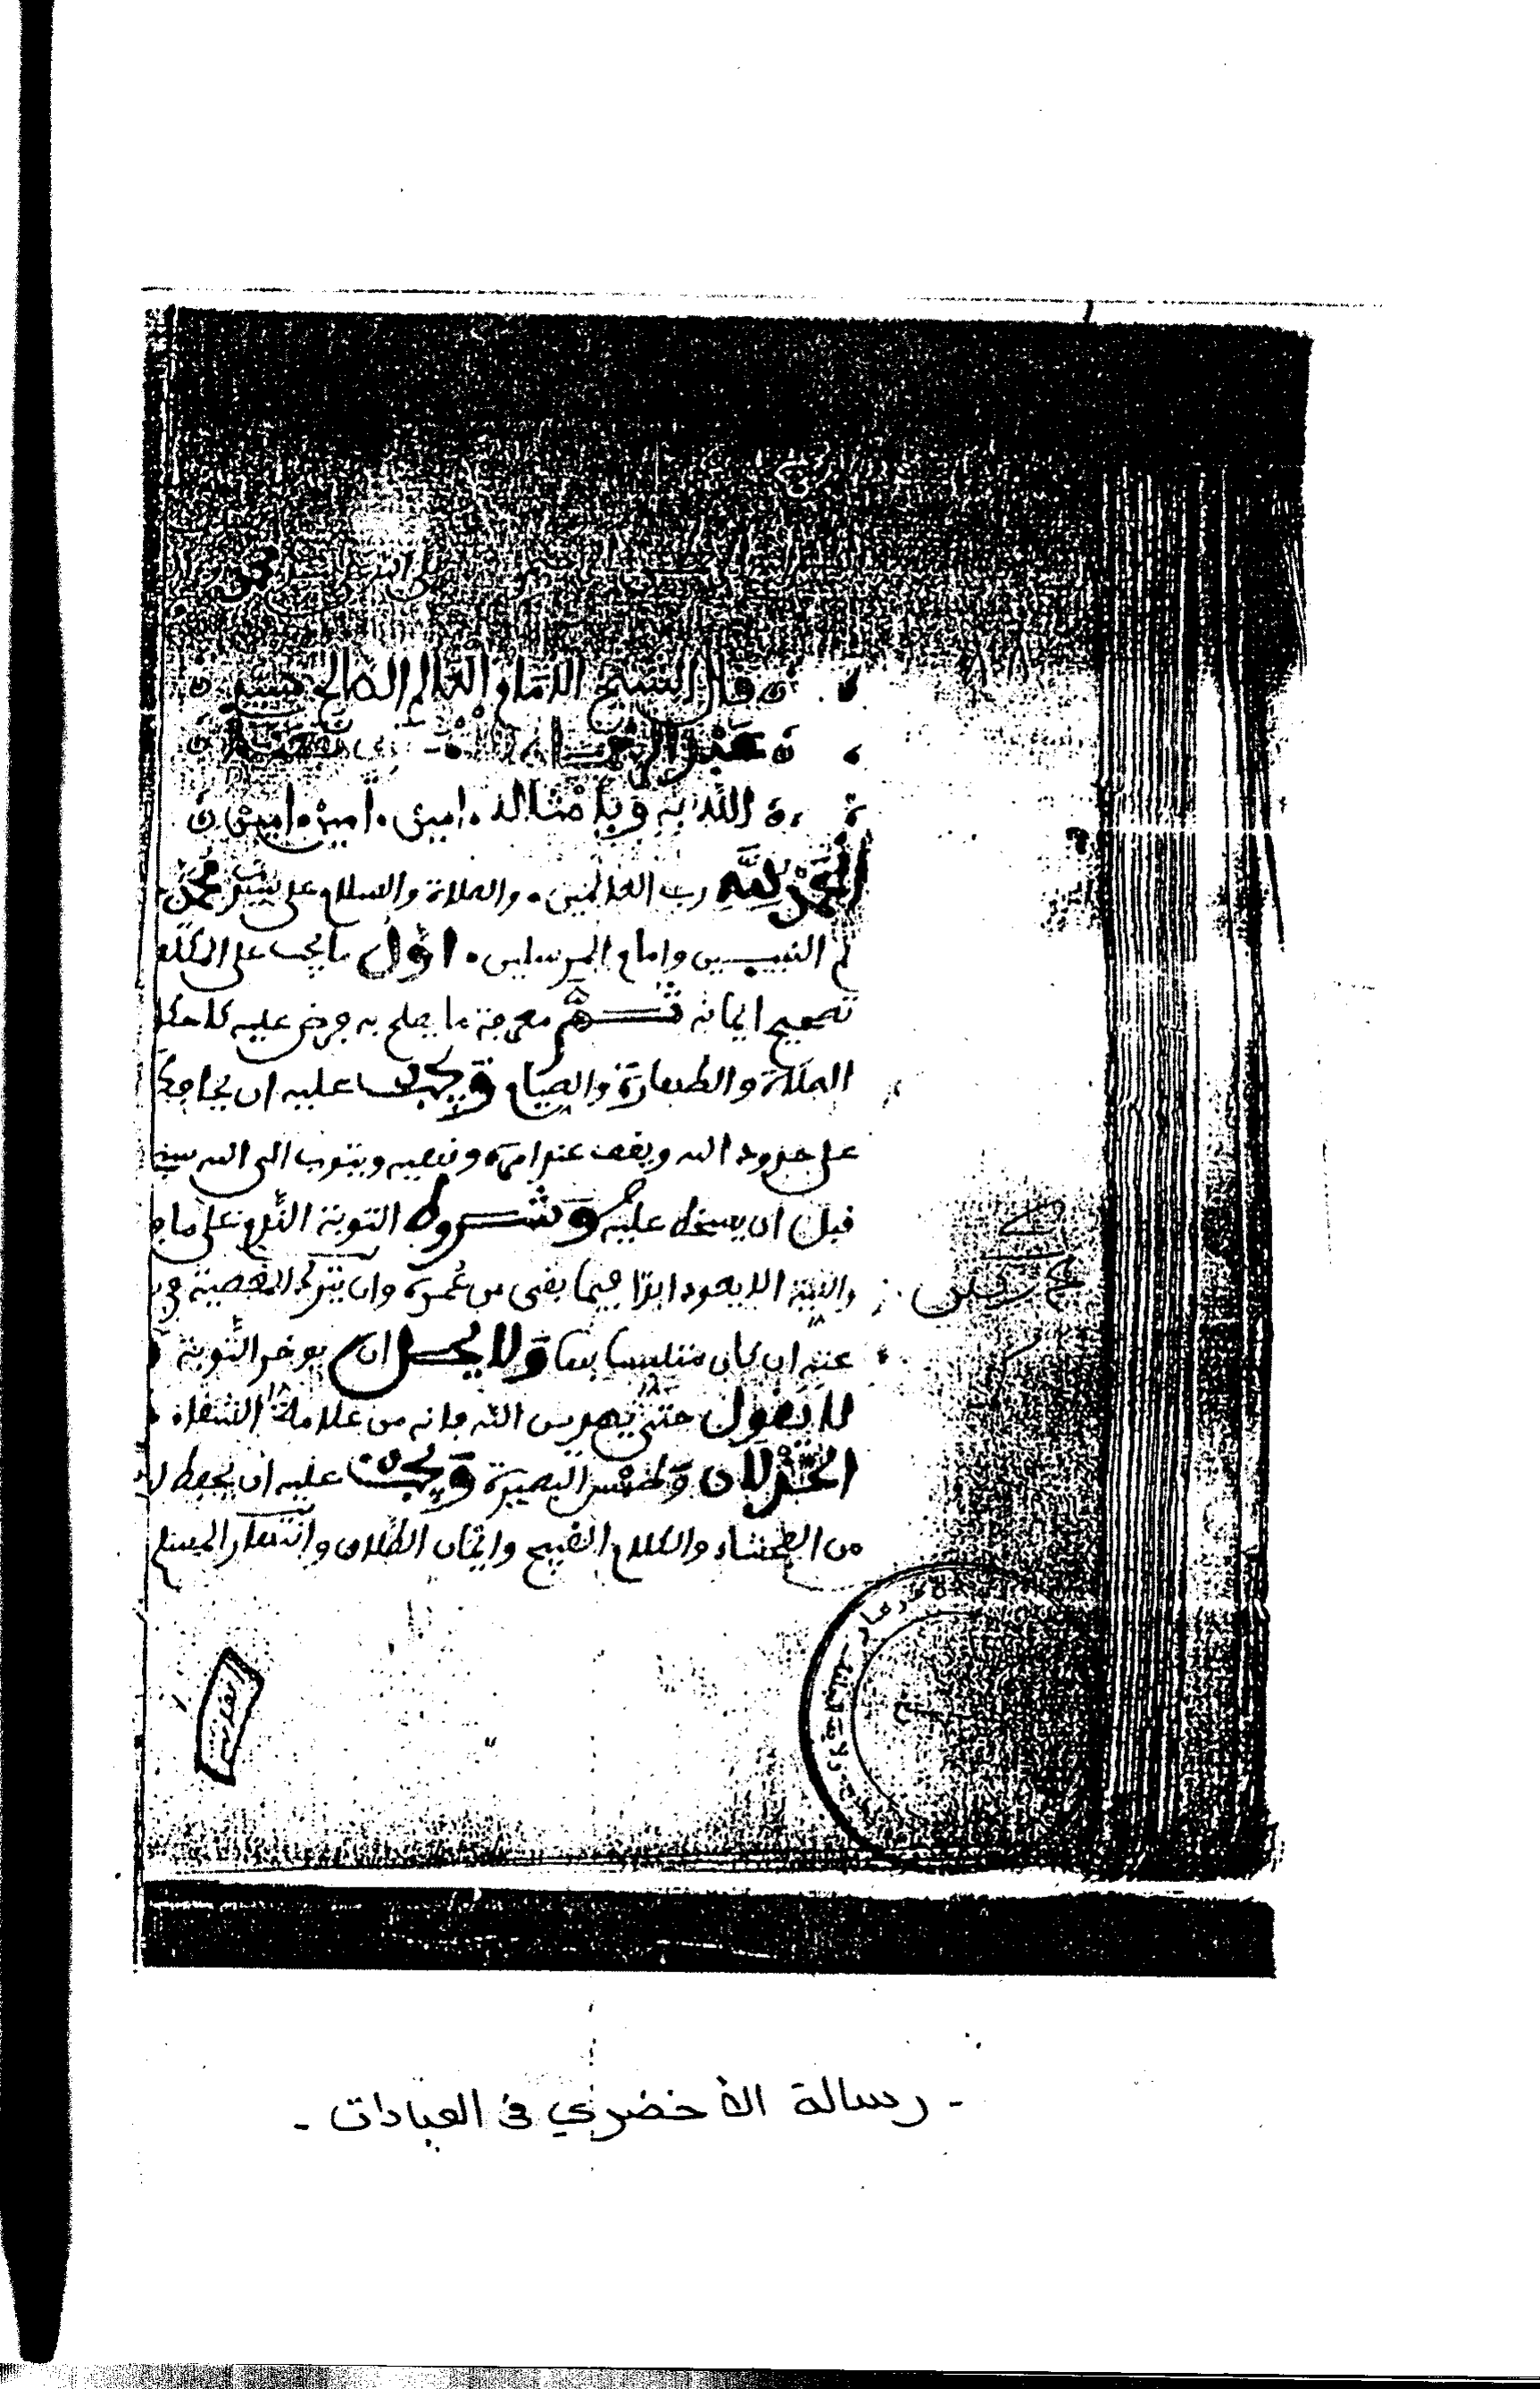 قال الشيخ الامام العالم الصالح سيدي
عبد الرحمن
الله به وبامثاله امين امين امين
الحمد لله رب العالمين والصلاة والسلام على سيدنا محمد
تم النبيين وامام المرسلين اول ما يجب على المكلف
تصحيح ايمانه ثم معرفة ما يصلح به فرض عليه كاحكا
الصلاة والطهارة والصيام ويجب عليه ان يحافظ
على حدود الله ويقف عند امره ونهيه ويتوب الى الله سبحا
قبل ان يسخط عليه وشروط التوبة الندم على ما
والنية الا يعود ابدا فيما بقي من عمره وان يترك المعصية في
عته ان كان متلبسا بها ولا يحل ان يوخر التوبة
لا يقول حتى يهدين الله فانه من علامة الشقاء
الخذلان وطمس البصيرة ويجب عليه ان يحفظ ل
من الفحشاء والكلام القبيح وايمان الطلاق وانتهار المسلم
- رسالة الأخضري في العبادات -